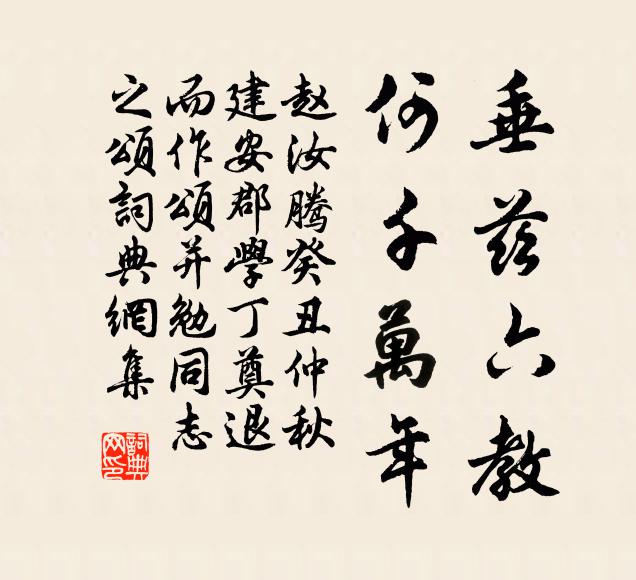 垂茲六教
何千萬年
赵汝騰癸丑仲秋
建安郡學丁奠退
而作頌并勉同志
之頌詞典網集
詞典网印